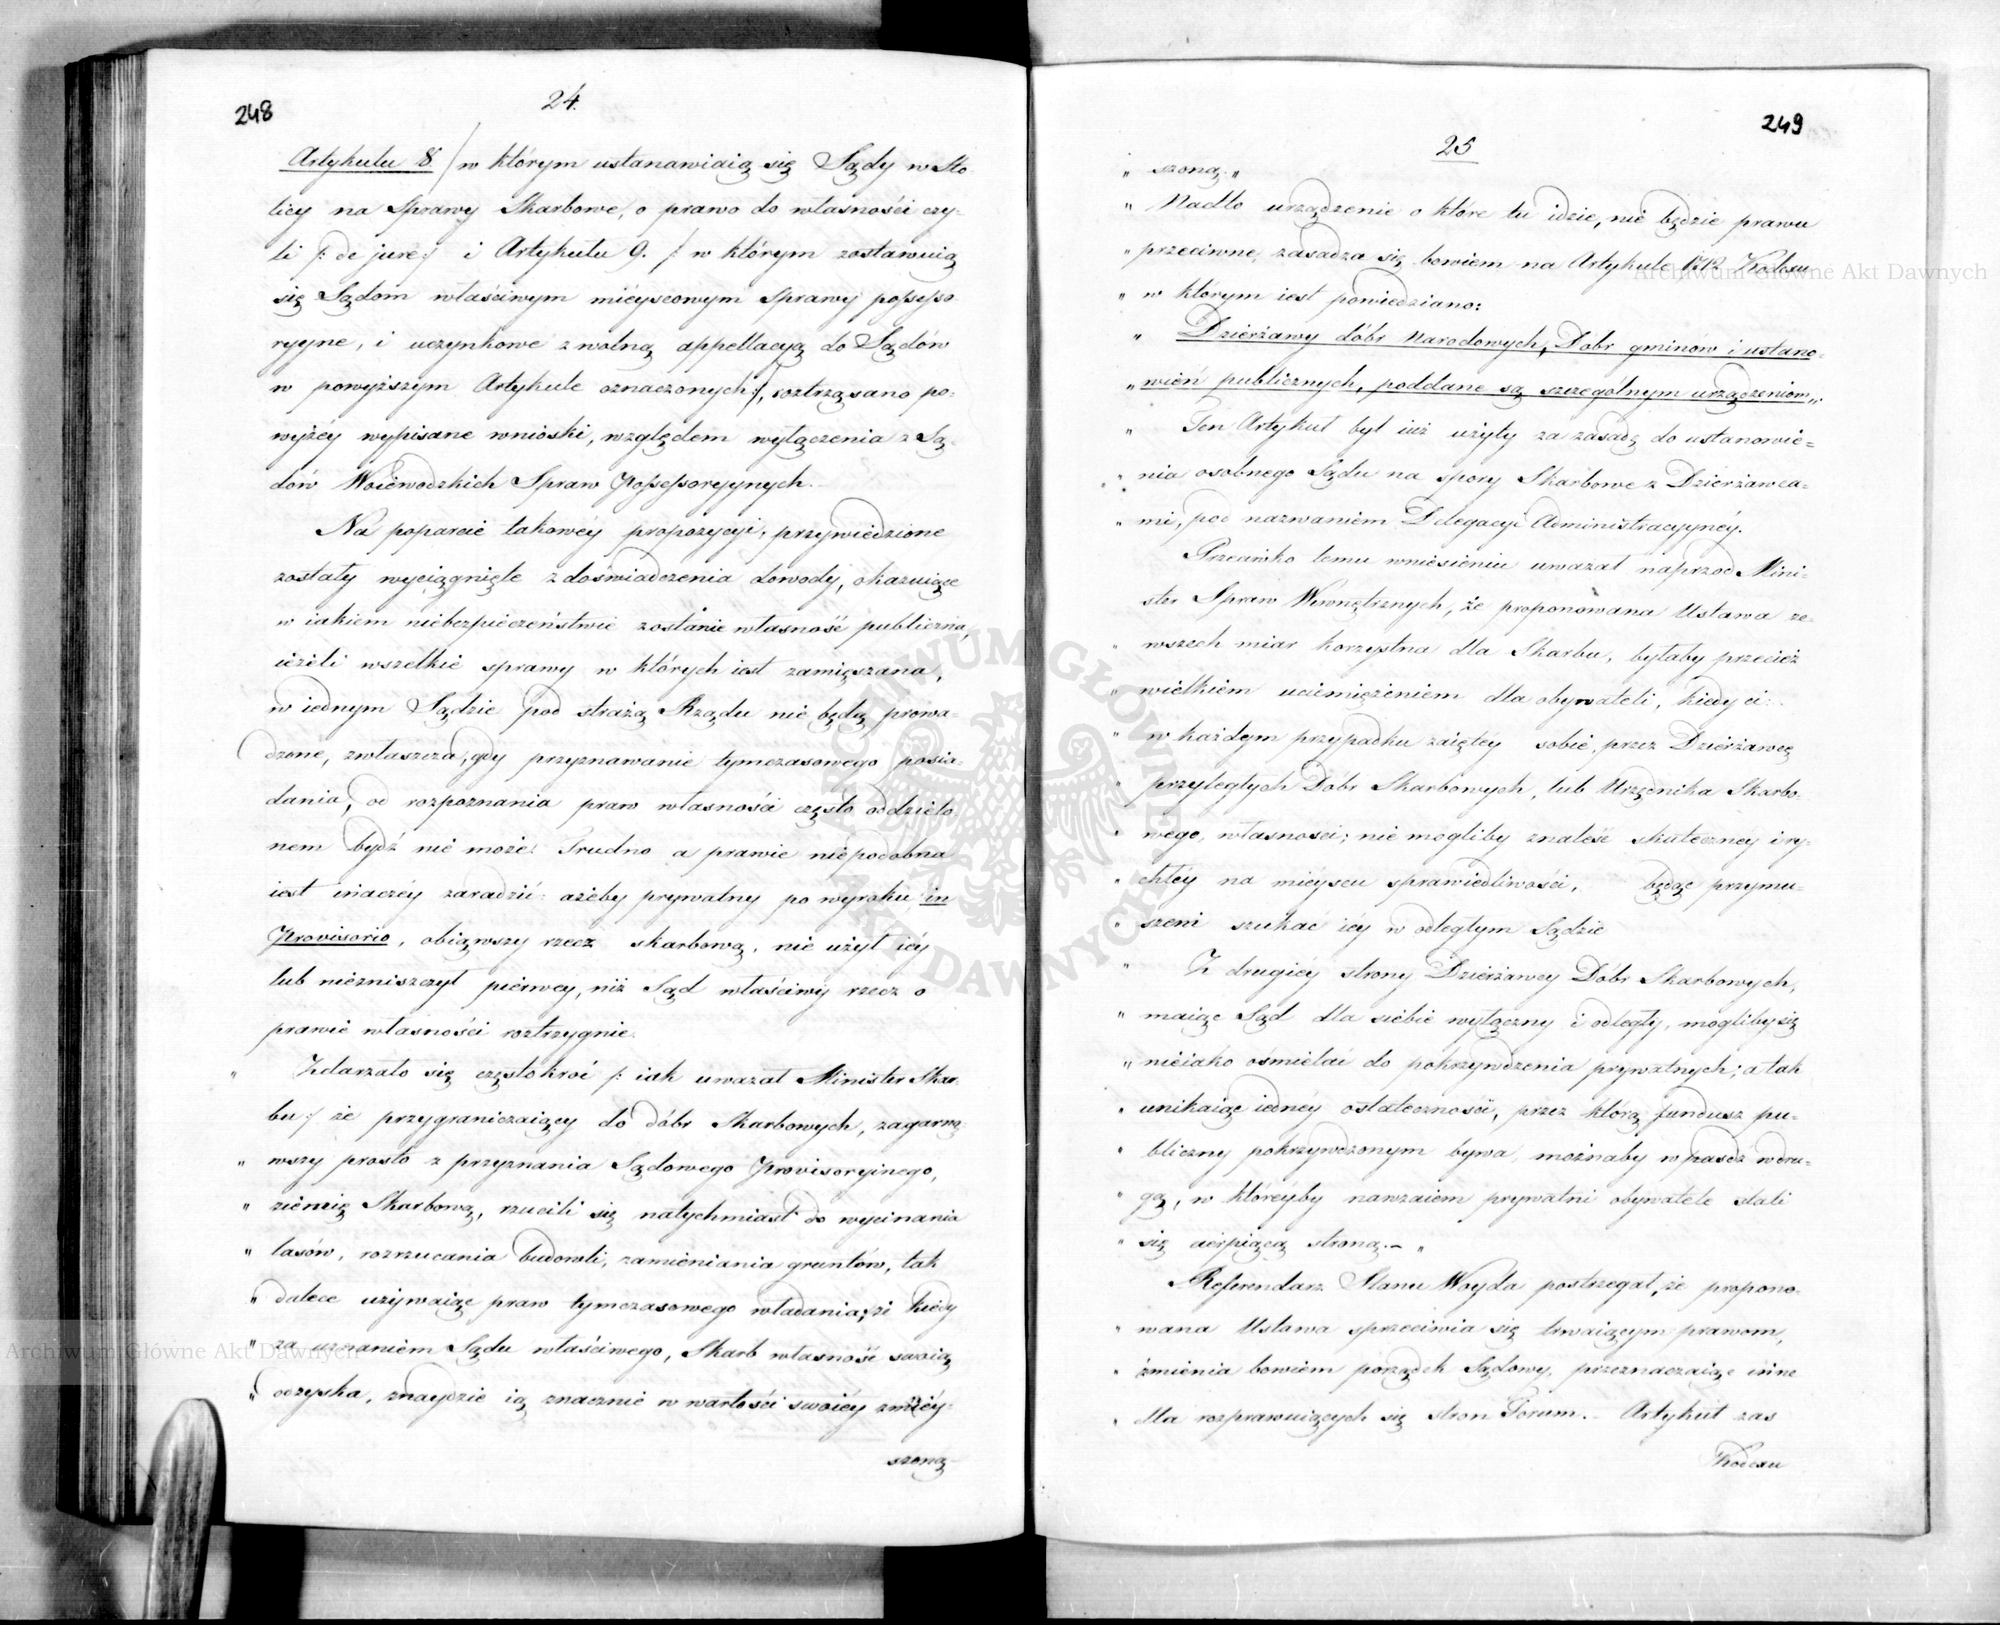 248
24.
Artykułu 8. /w którym ustanawiaią się Sądy w Sto
licy na Sprawy Skarbowe, o prawo do własności czy-
li /: de jure :/ i Artykułu 9. /: w którym zostawuią
się Sądom właściwym mieyscowym Sprawy possesso
ryyne, i uczynkowe z wolną appellacyą do Sądów
w powyższym Artykule oznaczonych :/, roztrząsano po-
wyżéy wypisane wnioski, względem wyłączenia z Są-
dów Woiewodzkich Spraw Possessoryynych.
Na poparcie takowey propozycyi, przywiedzione
zostały wyciągnięte z doświadczenia dowody, okazuiące
w iakiem niebezpieczeństwie zostanie własność publiczna,
ieżeli wszelkie sprawy w których iest zamięszana,
w iednym Sądzie pod strażą Rządu nie będą prowa-
dzone, zwłaszcza, gdy przyznawanie tymczasowego posia-
dania, od rozpoznania praw własności często oddzielo
nem bydź nie może. Trudno a prawie niepodobna
iest inaczéy zaradzić: ażeby prywatny po wyroku in
Provisorio, obiąwszy rzecz skarbową, nie użył iéy
lub niezniszczył pierwey, niż Sąd właściwy rzecz o
prawie własności roztrzygnie.
" Zdarzało się częstokroć /: iak uważał Minister Skar-
bu :/ że przygraniczaiący do dóbr Skarbowych, zagarną-
" wszy prosto z przyznania Sądowego Provisoryinego,
" ziemię Skarbową, rzucili się natychmiast do wycinania
" lasów, rozrzucania budowli, zamieniania gruntów, tak
" dalece używaiąc praw tymczasowego władania, że kiedy
" za uznaniem Sądu właściwego, Skarb własność swoią
" odzyska, znaydzie ią znacznie w wartości swoiéy zmniéy-
szoną
249
25
" szoną."
" Nadto urządzenie o które tu idzie, nie będzie prawu
" przeciwne, zasadza się bowiem na Artykule 1712 Kodexu
" w którym iest powiedziano:
" Dzierżawy dóbr Narodowych, Dóbr gminów i ustano-
" wień publicznych, poddane są szczególnym urządzeniom."
" Ten Artykuł był iuż użyty za zasadę do ustanowie-
" nia osobnego Sądu na spory Skarbowe z Dzierżawca-
" mi, pod nazwaniem Delegacyi Administracyynéy.
Przeciwko temu wniesieniu uważał naprzód Mini-
ster Spraw Wewnętrznych, że proponowana Ustawa ze-
" wszech miar korzystna dla Skarbu, byłaby przecież
" wielkiem uciemiężeniem dla obywateli, kiedy ci
" w każdym przypadku zaiętey sobie, przez Dzierżawcę
" przyległych Dóbr Skarbowych, lub Urzędnika Skarbo-
" wego, własności; nie mogliby znaleść skuteczney i ry-
" chłey na mieyscu sprawiedliwości, będąc przymu-
" szeni szukać iéy w odległym Sądzie
" Z drugiéy strony Dzierżawcy Dóbr Skarbowych,
" maiąc Sąd dla siebie wyłączny i odległy, mogliby się
" nieiako ośmielać do pokrzywdzenia prywatnych; a tak
" unikaiąc iedney ostateczności, przez którą fundusz pu-
" bliczny pokrzywdzonym bywa, możnaby wpaśdź w dru-
" gą, w któréyby nawzaiem prywatni obywatele stali
" się cierpiącą stroną. — "
Referendarz Stanu Woyda postrzegał, że propono-
" wana Ustawa sprzeciwia się trwaiącym prawom,
" zmienia bowiem porządek Sądowy, przeznaczaiąc inne
" dla rozprawuiących się stron Forum. — Artykuł zas
Kodexu